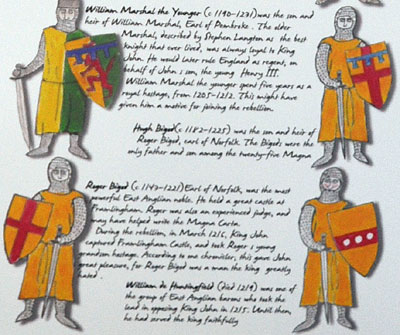 William Marshal the Younger (c 1190-1231) was the son and
heir of William Marshal, Earl of Pembroke. The elder
Marshal, described by Stephen Langton as the best
knight that ever lived, was always loyal to King
John. He would later rule England as regent, on
behalf of John's son, the young Henry III.
William Marshal the younger spent five years as a
royal hostage, from 1205-1212. This might have
given him a motive for joining the rebellion.
Hugh Bigod (c 1182-1225) was the son and heir of
Roger Bigod, earl of Norfolk. The Bigods were the
only father and son among the twenty-five Magna
Roger Bigod (c 1143-1221) Earl of Norfolk, was the most
powerful East Anglian noble. He held a great castle at
Framlingham. Roger was also an experienced judge, and
may have helped write the Magna Carta.
During the rebellion, in March 1215, King John
captured Framlingham Castle, and took Roger's young
grandson hostage. According to one chronicler, this gave John
great pleasure, for Roger Bigod was a man the king greatly
hated.
William de Huntingfield (died 1219) was one of
the group of East Anglian barons who took the
lead in opposing King John in 1215. Until then,
he had served the king faithfully